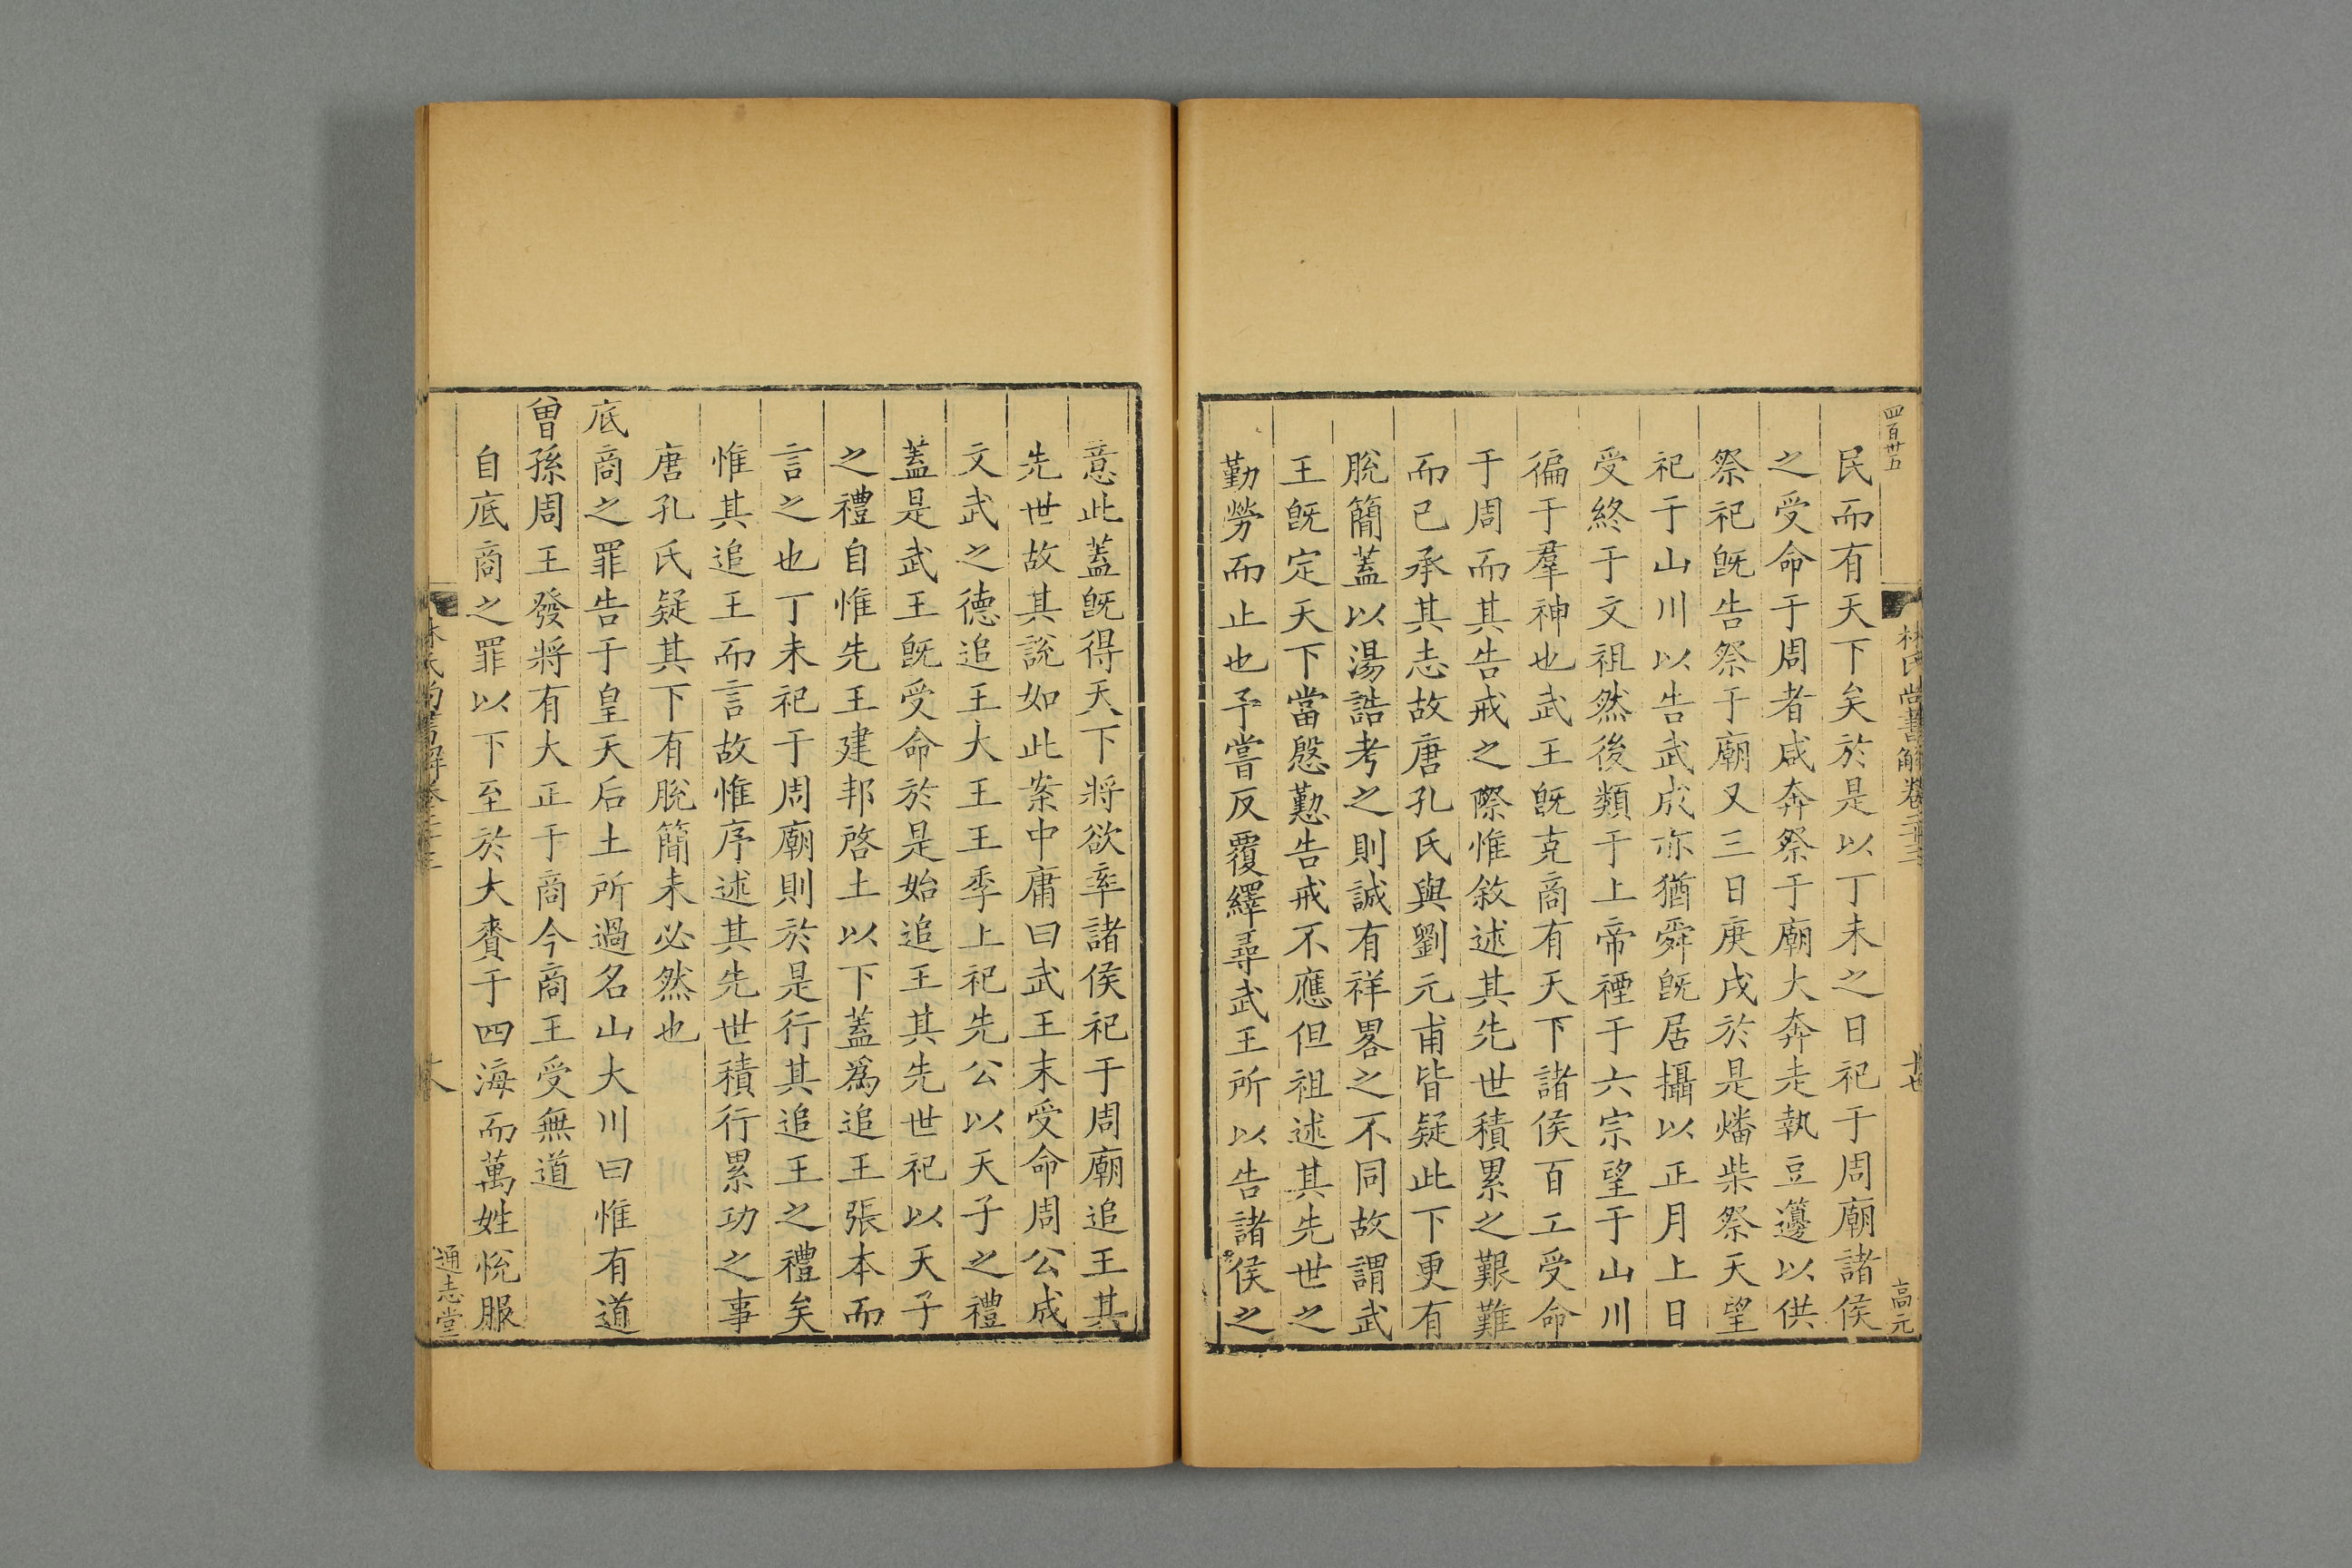 四百卅五
林氏尚書解卷二十三
十七
高元
民而有天下矣於是以丁未之日祀于周廟諸侯
之受命于周者咸奔祭于廟大奔走執豆籩以供
祭祀旣告祭于廟又三日庚戌於是燔柴祭天望
祀于山川以告武成亦猶舜旣居攝以正月上日
受終于文祖然後類于上帝禋于六宗望于山川
徧于羣神也武王旣克商有天下諸侯百工受命
于周而其告戒之際惟敘述其先世積累之艱難
而已承其志故唐孔氏與劉元甫皆疑此下更有
脫簡蓋以湯誥考之則誠有祥畧之不同故謂武
王旣定天下當慇懃告戒不應但祖述其先世之
勤勞而止也予嘗反覆繹尋武王所以告諸侯之
意此蓋旣得天下將欲率諸侯祀于周廟追王其
先世故其說如此案中庸曰武王末受命周公成
文武之德追王大王王季上祀先公以天子之禮
蓋是武王旣受命於是始追王其先世祀以天子
之禮自惟先王建邦啓土以下蓋爲追王張本而
言之也丁未祀于周廟則於是行其追王之禮矣
惟其追王而言故惟序述其先世積行累功之事
唐孔氏疑其下有脫簡未必然也
底商之罪告于皇天后土所過名山大川曰惟有道
曾孫周王發將有大正于商今商王受無道
自底商之罪以下至於大賚于四海而萬姓悅服
林氏尚書解卷二十三
通志堂